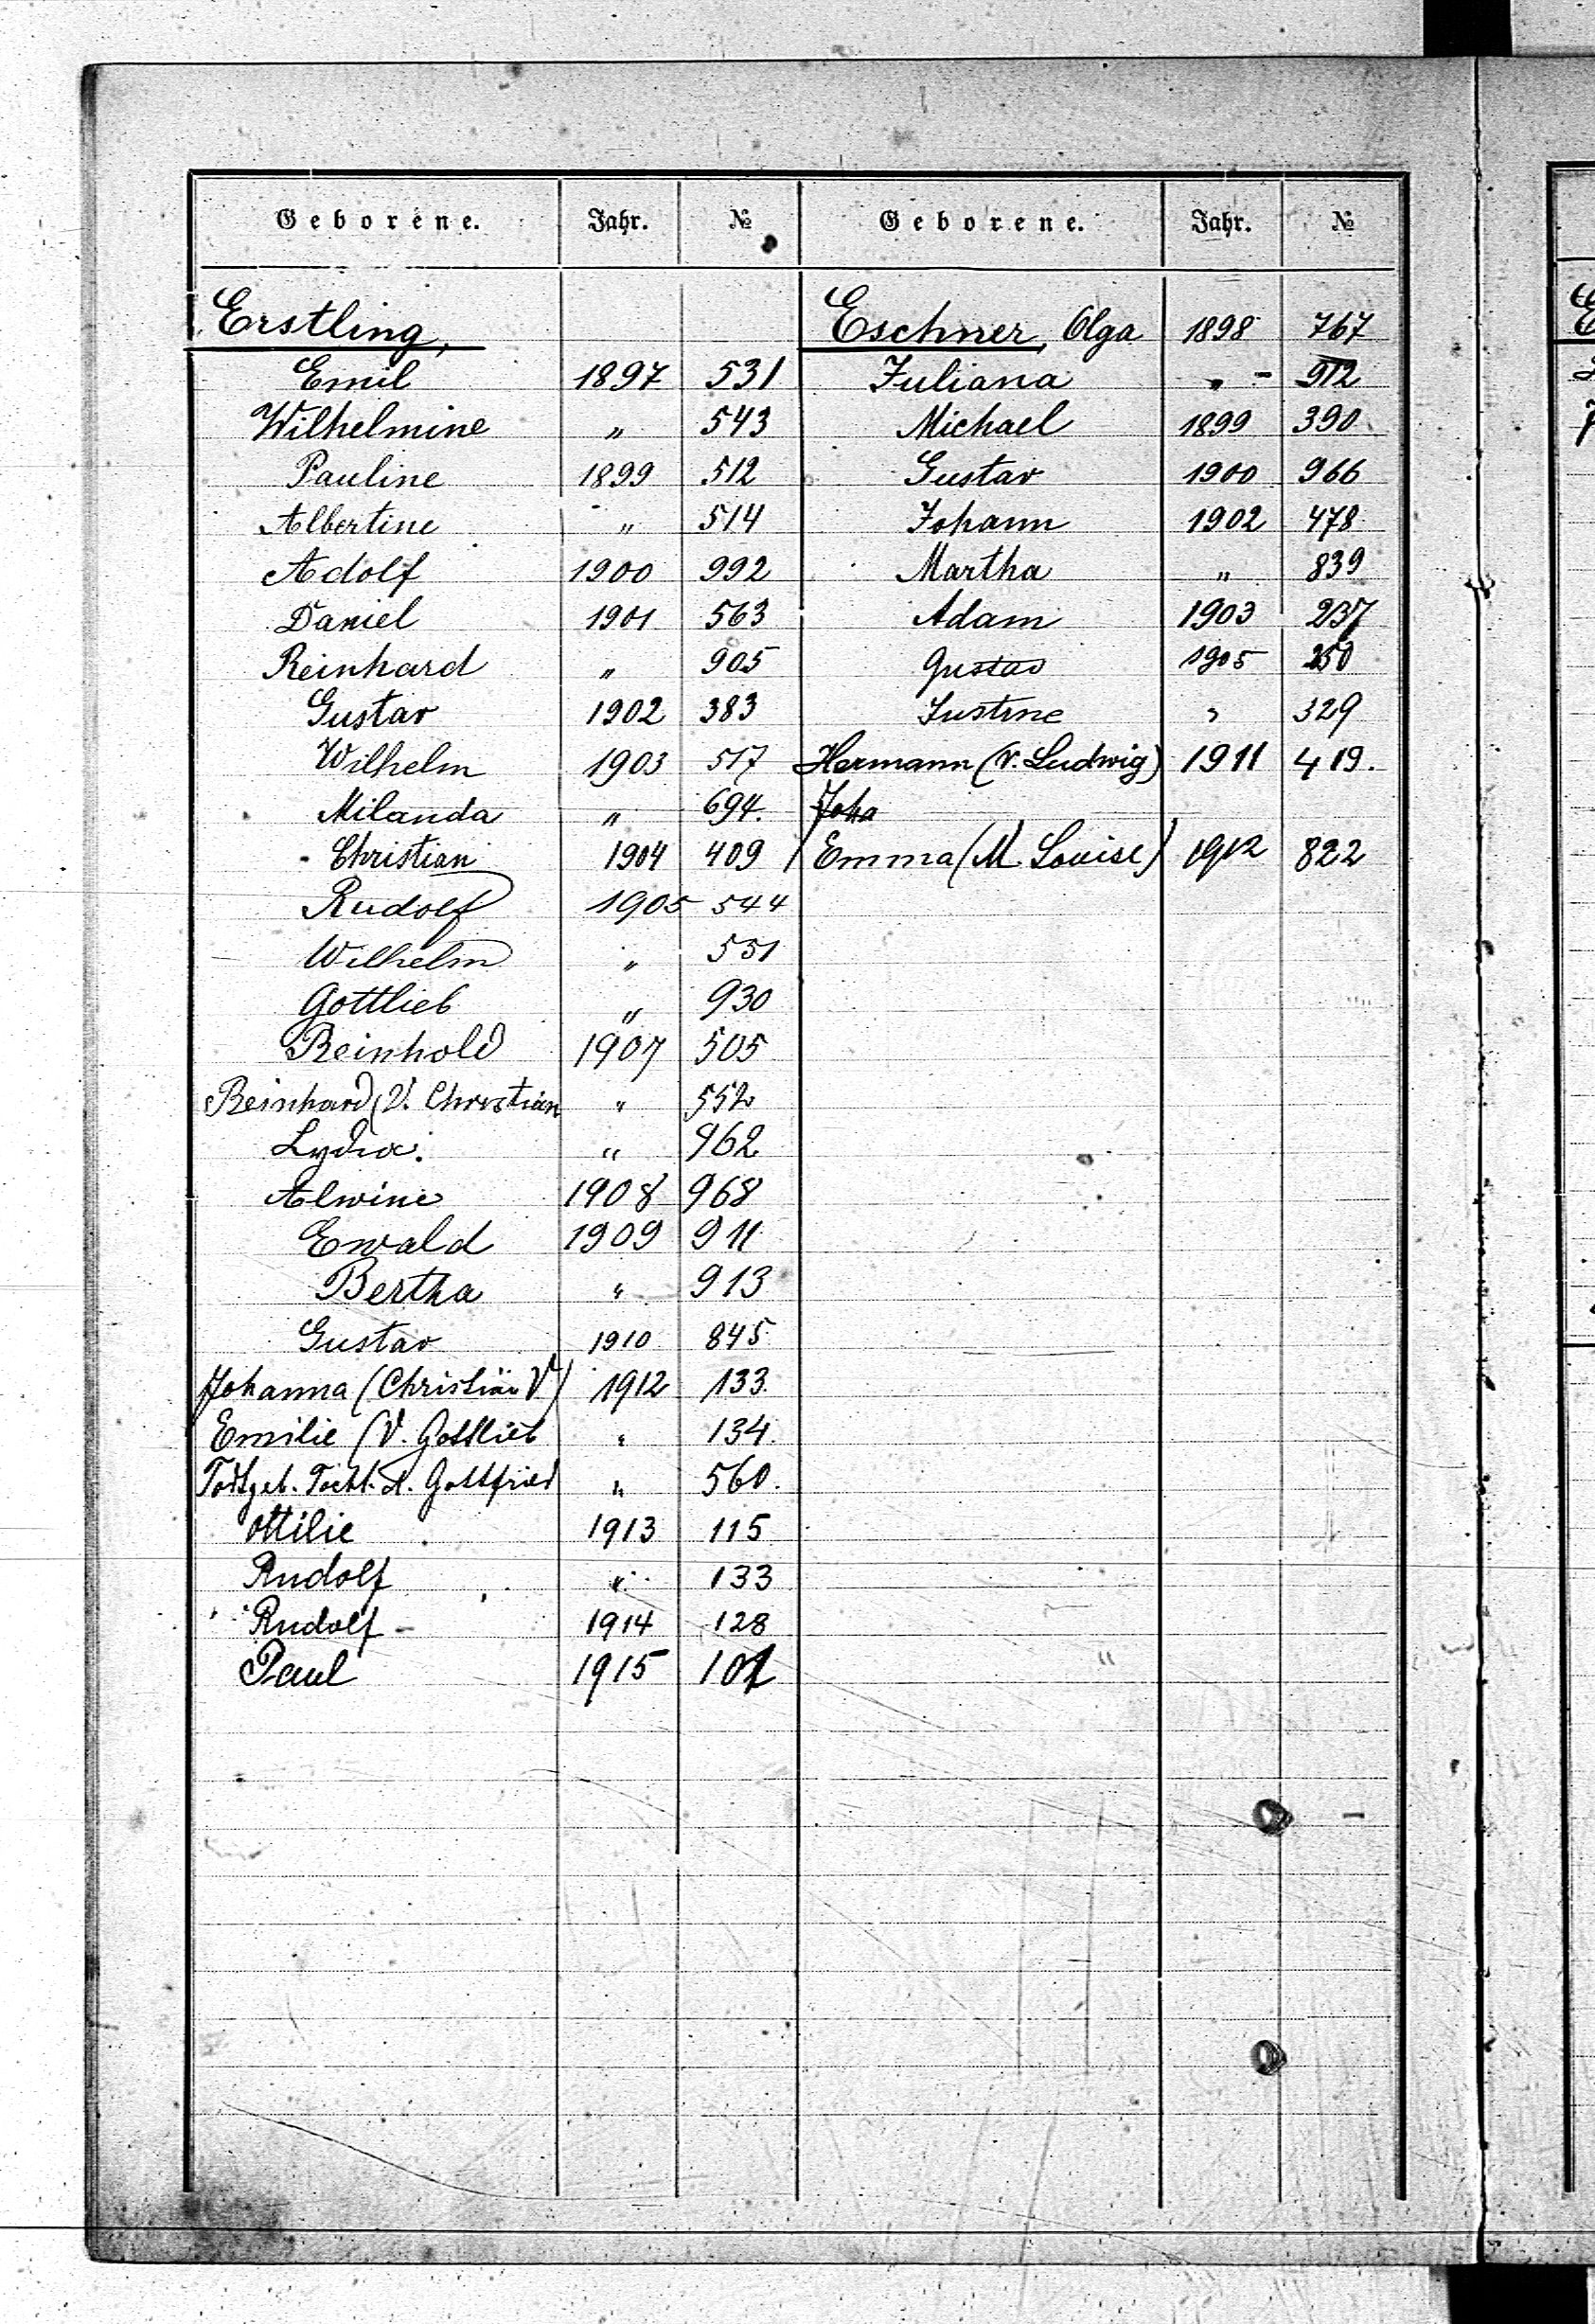 Geborene. Jahr. № Geborene. Jahr. №
Erstling,
Emil 1897 531
Wilhelmine " 543
Pauline 1899 512
Albertine " 514
Adolf 1900 992
Daniel 1901 563
Reinhard " 905
Gustav 1902 383
Wilhelm 1903 517
Milanda " 694.
Christian 1904 409
Rudolf 1905 544
Wilhelm " 551
Gottlieb " 930
Reinhold 1907 505
Reinhard (V. Christian " 552
Lydia. " 962
Alwine 1908 968
Ewald 1909 911
Bertha " 913
Gustav 1910 845
Johanna (Christian V) 1912 133.
Emilie (V. Gottlieb " 134.
Todtgeb. Tocht. d. Gottfried " 560.
Ottilie 1913 115
Rudolf " 133
Rudolf - 1914 128
Paul 1915 101
Eschner, Olga 1898 767
Juliana " - 912
Michael 1899 390
Gustav 1900 966
Johann 1902 478
Martha " 839
Adam 1903 237
Gustav 1905 250
Justine " 329
Hermann (V. Ludwig) 1911 419.
Joha
Emma (M. Louise) 1912 822